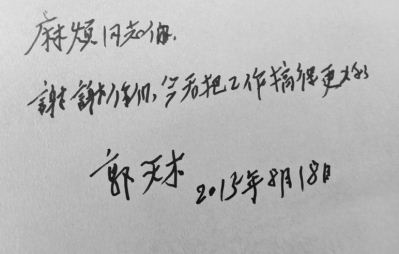 麻烦同志们.
謝謝你们,今后把工作搞得更好
郭天木 2015年8月18日